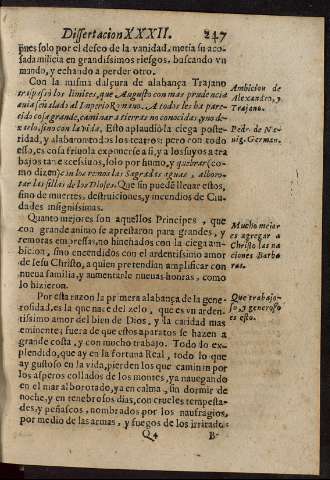 Dissertacion XXXII. 247
pues solo por el deseo de la vanidad, metia su aco-
sada milicia en grandissimos riesgos, buscando vn
mundo, y echando a perder otro.
Con la misma dulçura de alabança Trajano
traspassò los limites, que Augusto con mas prudencia
avia señalado al Imperio Romano. A todos les ha pare-
cido cosa grande, caminar a tierras no conocidas, y no de-
xarlo, sino con la vida. Esto aplaudiò la ciega poste-
ridad, y alabaronto dos los teatros: pero con todo
esso, es cosa frivola exponerse a sì, y a los suyos a tra
bajos tan excessivos, solo por humo, y quebrar (co-
mo dizen) con los remos las Sagradas aguas, alboro-
tar las sillas de los Dioses. Que fin puede llevar estos,
sino de muertes, destruiciones, y incendios de Ciu-
dades insignissimas.
Ambicion de
Alexandro, y
Trajano.
Pedr. de
Germ.
Quanto mejores son aquellos Principes, que
con grande animo se aprestaron para grandes, y
remotas empressas, no hinchados con la ciega am-
bicion, sino encendidos con el ardentissimo amor
de Jesu Christo, a quien pretendian amplificar con
nueva familia, y aumentarle nuevas honras, como
lo hizieron.
Mucho mejor
es agregar a
Christo las na
ciones Barba
ras.
Por esta razon la primera alabança de la gene-
rosidad, es la que nace del zelo, que es vn arden-
tissimo amor del bien de Dios, y la caridad mas
eminente; fuera de que estos aparatos se hazen a
grande costa, y con mucho trabajo. Todo lo ex-
plendido, que ay en la fortuna Real, todo lo que
ay gustoso en la vida, pierden los que caminan por
los asperos collados de los montes, ya navegando
en el mar alborotado, ya en calma, sin dormir de
noche, y en tenebrosos dias, con crueles tempesta-
des, y peñascos, nombrados por los naufragios,
por medio de las armas, y fuegos de los irritados
Que trabajo-
so, y generoso
es esto.
Q4 B-